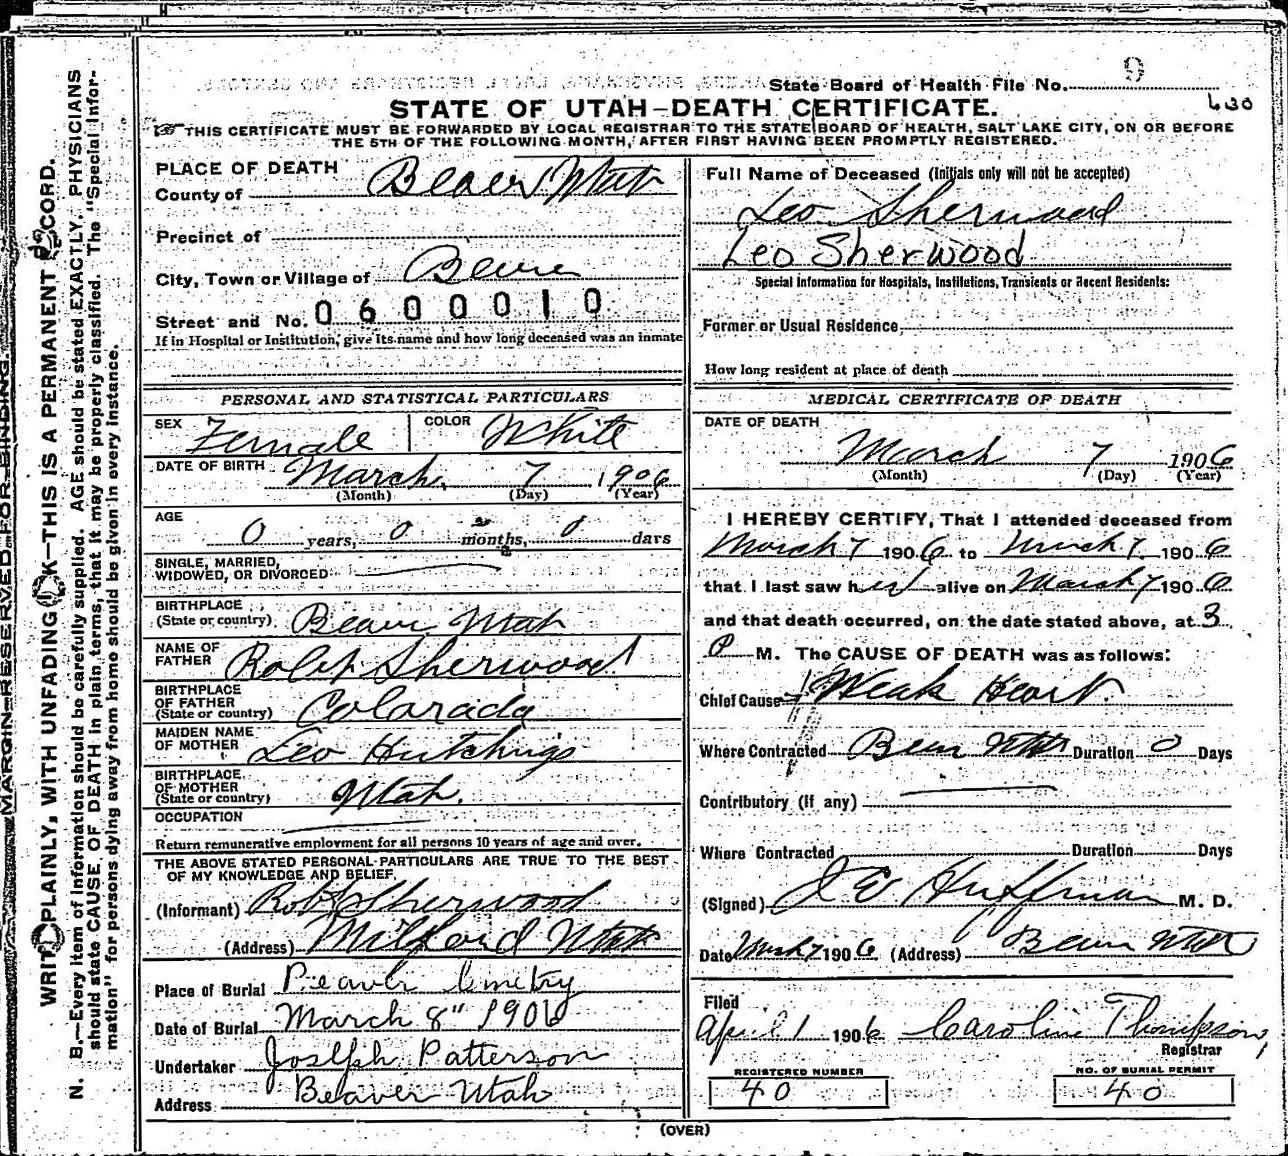 State Board of Health File No. 9
430
STATE OF UTAH—DEATH CERTIFICATE.
THIS CERTIFICATE MUST BE FORWARDED BY LOCAL REGISTRAR TO THE STATE BOARD OF HEALTH, SALT LAKE CITY, ON OR BEFORE
THE 5TH OF THE FOLLOWING MONTH, AFTER FIRST HAVING BEEN PROMPTLY REGISTERED.
MARGIN RESERVED FOR BINDING.
WRITE PLAINLY, WITH UNFADING INK—THIS IS A PERMANENT RECORD.
N. B.—Every item of information should be carefully supplied. AGE should be stated EXACTLY. PHYSICIANS
should state CAUSE OF DEATH in plain terms, that it may be properly classified. The "Special Infor-
mation" for persons dying away from home should be given in every instance.
PLACE OF DEATH
County of Beaver Utah
Precinct of
City, Town or Village of Beaver
Street and No. 0600010
If in Hospital or Institution, give its name and how long deceased was an inmate
PERSONAL AND STATISTICAL PARTICULARS
SEX Female COLOR White
DATE OF BIRTH March 7 1906
(Month) (Day) (Year)
AGE
0 years, 0 months, 0 days
SINGLE, MARRIED,
WIDOWED, OR DIVORCED
BIRTHPLACE
(State or country) Beaver Utah
NAME OF
FATHER Robt Sherwood
BIRTHPLACE
OF FATHER
(State or country) Colorado
MAIDEN NAME
OF MOTHER Leo Hutchings
BIRTHPLACE
OF MOTHER
(State or country) Utah.
OCCUPATION
Return remunerative employment for all persons 10 years of age and over.
THE ABOVE STATED PERSONAL PARTICULARS ARE TRUE TO THE BEST
OF MY KNOWLEDGE AND BELIEF,
(Informant) Robt Sherwood
(Address) Milford Utah
Place of Burial Beaver Cmetry
Date of Burial March 8" 1906
Undertaker Joseph Patterson
Beaver Utah
Address
Full Name of Deceased (Initials only will not be accepted)
Leo Sherwood
Leo Sherwood
Special Information for Hospitals, Institutions, Transients or Recent Residents:
Former or Usual Residence,
How long resident at place of death
MEDICAL CERTIFICATE OF DEATH
DATE OF DEATH
March 7 1906
(Month) (Day) (Year)
I HEREBY CERTIFY, That I attended deceased from
March 7 1906 to March 7. 1906
that I last saw her alive on March 7 1906
and that death occurred, on the date stated above, at 3
P M. The CAUSE OF DEATH was as follows:
Chief Cause Weak Heart
Where Contracted Beaver Utah Duration 0 Days
Contributory (if any)
Where Contracted Duration Days
(Signed) Huffman M. D.
Date March 7 1906 (Address) Beaver Utah
Filed
April 1 1906 Caroline Thompson,
Registrar
REGISTERED NUMBER
40
NO. OF BURIAL PERMIT
40
(OVER)